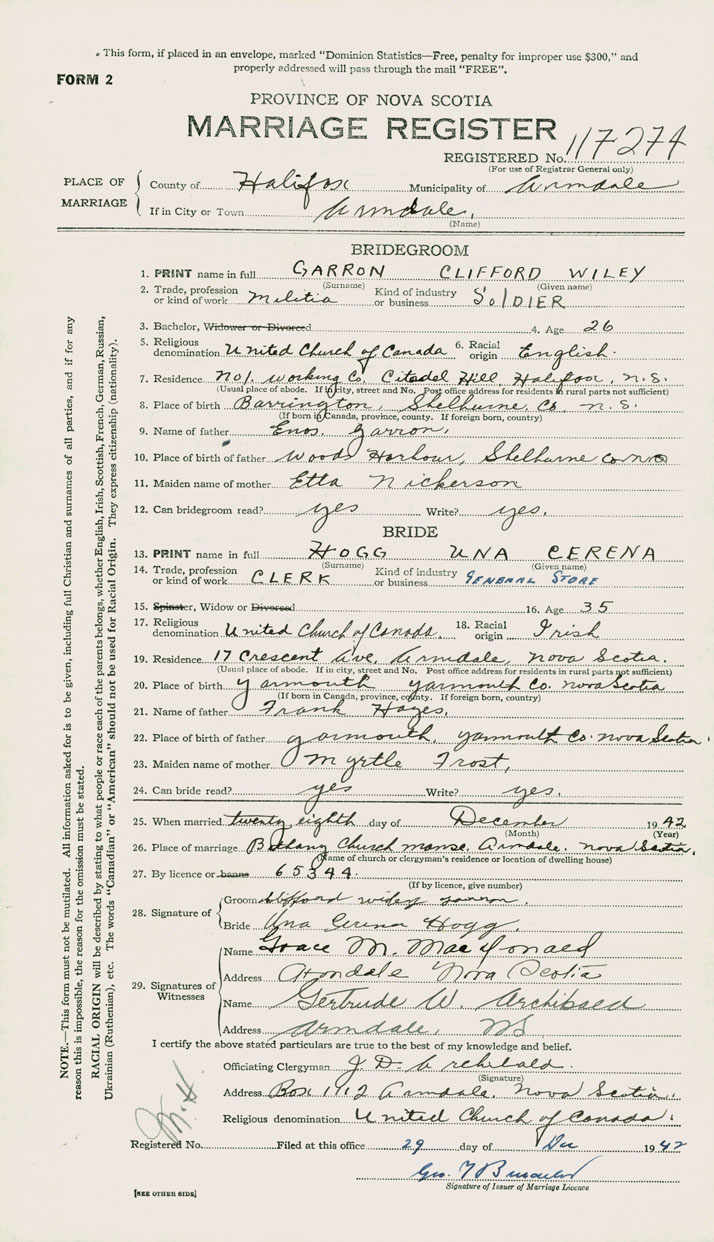 • This form, if placed in an envelope, marked "Dominion Statistics—Free, penalty for improper use $300," and
properly addressed will pass through the mail "FREE".
FORM 2
PROVINCE OF NOVA SCOTIA
MARRIAGE REGISTER
REGISTERED No. 117274
(For use of Registrar General only)
PLACE OF MARRIAGE
County of Halifax Municipality of Armdale
If in City or Town Armdale.
(Name)
BRIDEGROOM
1. PRINT name in full GARRON CLIFFORD WILEY
(Surname) (Given name)
2. Trade, profession or kind of work Militia Kind of industry or business SOLDIER
3. Bachelor, Widower or Divorced 4. Age 26
5. Religious denomination United Church of Canada 6. Racial origin English.
7. Residence No 1 Working Co. Citadel Hill, Halifax, N.S.
(Usual place of abode. If in city, street and No. Post office address for residents in rural parts not sufficient)
8. Place of birth Barrington, Shelburne Co. N.S.
(If born in Canada, province, county. If foreign born, country)
9. Name of father Enos. Garron.
10. Place of birth of father Woods Harbour, Shelburne Co NS
11. Maiden name of mother Etta Nickerson
12. Can bridegroom read? yes Write? yes.
BRIDE
13. PRINT name in full HOGG UNA CERENA
(Surname) (Given name)
14. Trade, profession or kind of work CLERK Kind of industry or business GENERAL STORE
15. Spinster, Widow or Divorced 16. Age 35
17. Religious denomination United Church of Canada. 18. Racial origin Irish
19. Residence 17 Crescent Ave. Armdale, Nova Scotia.
(Usual place of abode. If in city, street and No. Post office address for residents in rural parts not sufficient)
20. Place of birth Yarmouth Yarmouth Co. Nova Scotia
(If born in Canada, province, county. If foreign born, country)
21. Name of father Frank Hayes.
22. Place of birth of father Yarmouth. Yarmouth Co. Nova Scotia.
23. Maiden name of mother Myrtle Frost,
24. Can bride read? yes Write? yes.
25. When married twenty eighth day of December 1942
(Month) (Year)
26. Place of marriage Bethany Church manse. Armdale. Nova Scotia.
(Name of church or clergyman's residence or location of dwelling house)
27. By licence or banns 65344.
(If by licence, give number)
28. Signature of
Groom Clifford Wiley Garron.
Bride Una Cerena Hogg.
29. Signatures of Witnesses
Name Grace M. MacDonald
Address Armdale Nova Scotia
Name Gertrude W. Archibald
Address Armdale, NS
I certify the above stated particulars are true to the best of my knowledge and belief.
Officiating Clergyman J. D. Archibald.
(Signature)
Address Box 1912 Armdale, Nova Scotia.
Religious denomination United Church of Canada.
Registered No. Filed at this office 29 day of Dec 1942
Geo.
Signature of Issuer of Marriage Licence
[SEE OTHER SIDE]
NOTE.—This form must not be mutilated. All information asked for is to be given, including full Christian and surnames of all parties, and if for any
reason this is impossible, the reason for the omission must be stated.
RACIAL ORIGIN will be described by stating to what people or race each of the parents belongs, whether English, Irish, Scottish, French, German, Russian,
Ukrainian (Ruthenian), etc. The words "Canadian" or "American" should not be used for Racial Origin. They express citizenship (nationality).